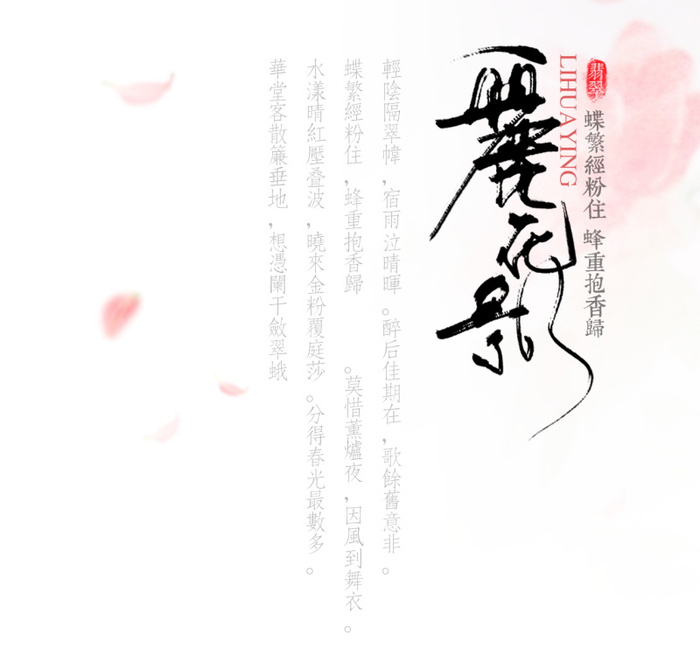 翡翠
蝶繁經粉住 蜂重抱香歸
LIHUAYING
麗花影
輕陰隔翠幃,宿雨泣晴暉。醉后佳期在,歌餘舊意非。
蝶繁經粉住,蜂重抱香歸。莫惜薰爐夜,因風到舞衣。
水漾晴紅壓叠波,曉來金粉覆庭莎。分得春光最數多。
華堂客散簾垂地,想憑闌干斂翠蛾